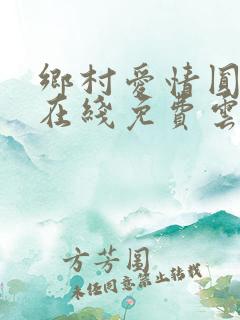 鄉村愛情圓
在綫免費雲
方芳閨
未任同意禁止轉載